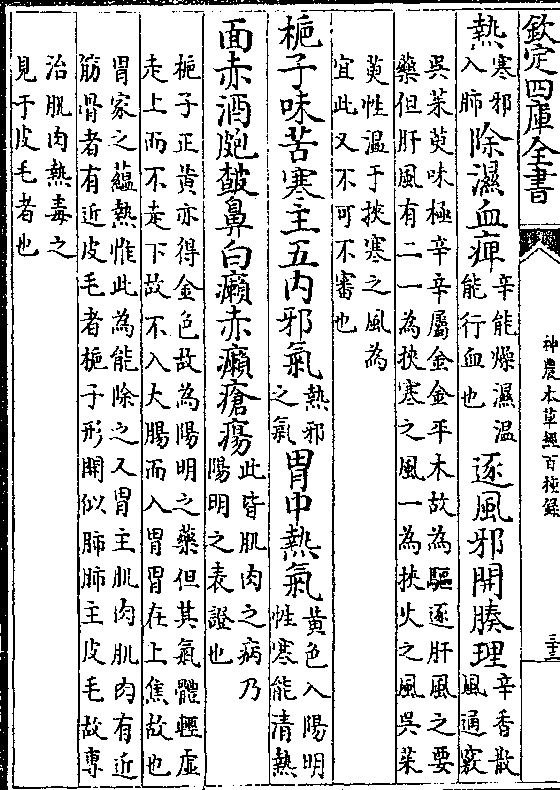 欽定四庫全書
神農本草經百種錄
三十三
熱寒邪入肺除濕血痺辛能燥濕溫能行血也逐風邪開腠理辛香散風通竅
吳茱萸味極辛辛屬金金平木故為驅逐肝風之要
藥但肝風有二一為挾寒之風一為挾火之風吳茱
萸性溫于挾寒之風為
宜此又不可不審也
梔子味苦寒主五内邪氣熱邪之氣胃中熱氣黃色入陽明性寒能清熱
面赤酒皰皶鼻白癩赤癩瘡瘍此皆肌肉之病乃陽明之表證也
梔子正黃亦得金色故為陽明之藥但其氣體輕虛
走上而不走下故不入大腸而入胃胃在上焦故也
胃家之蘊熱惟此為能除之又胃主肌肉肌肉有近
筋骨者有近皮毛者梔子形開似肺肺主皮毛故專
治肌肉熱毒之
見于皮毛者也